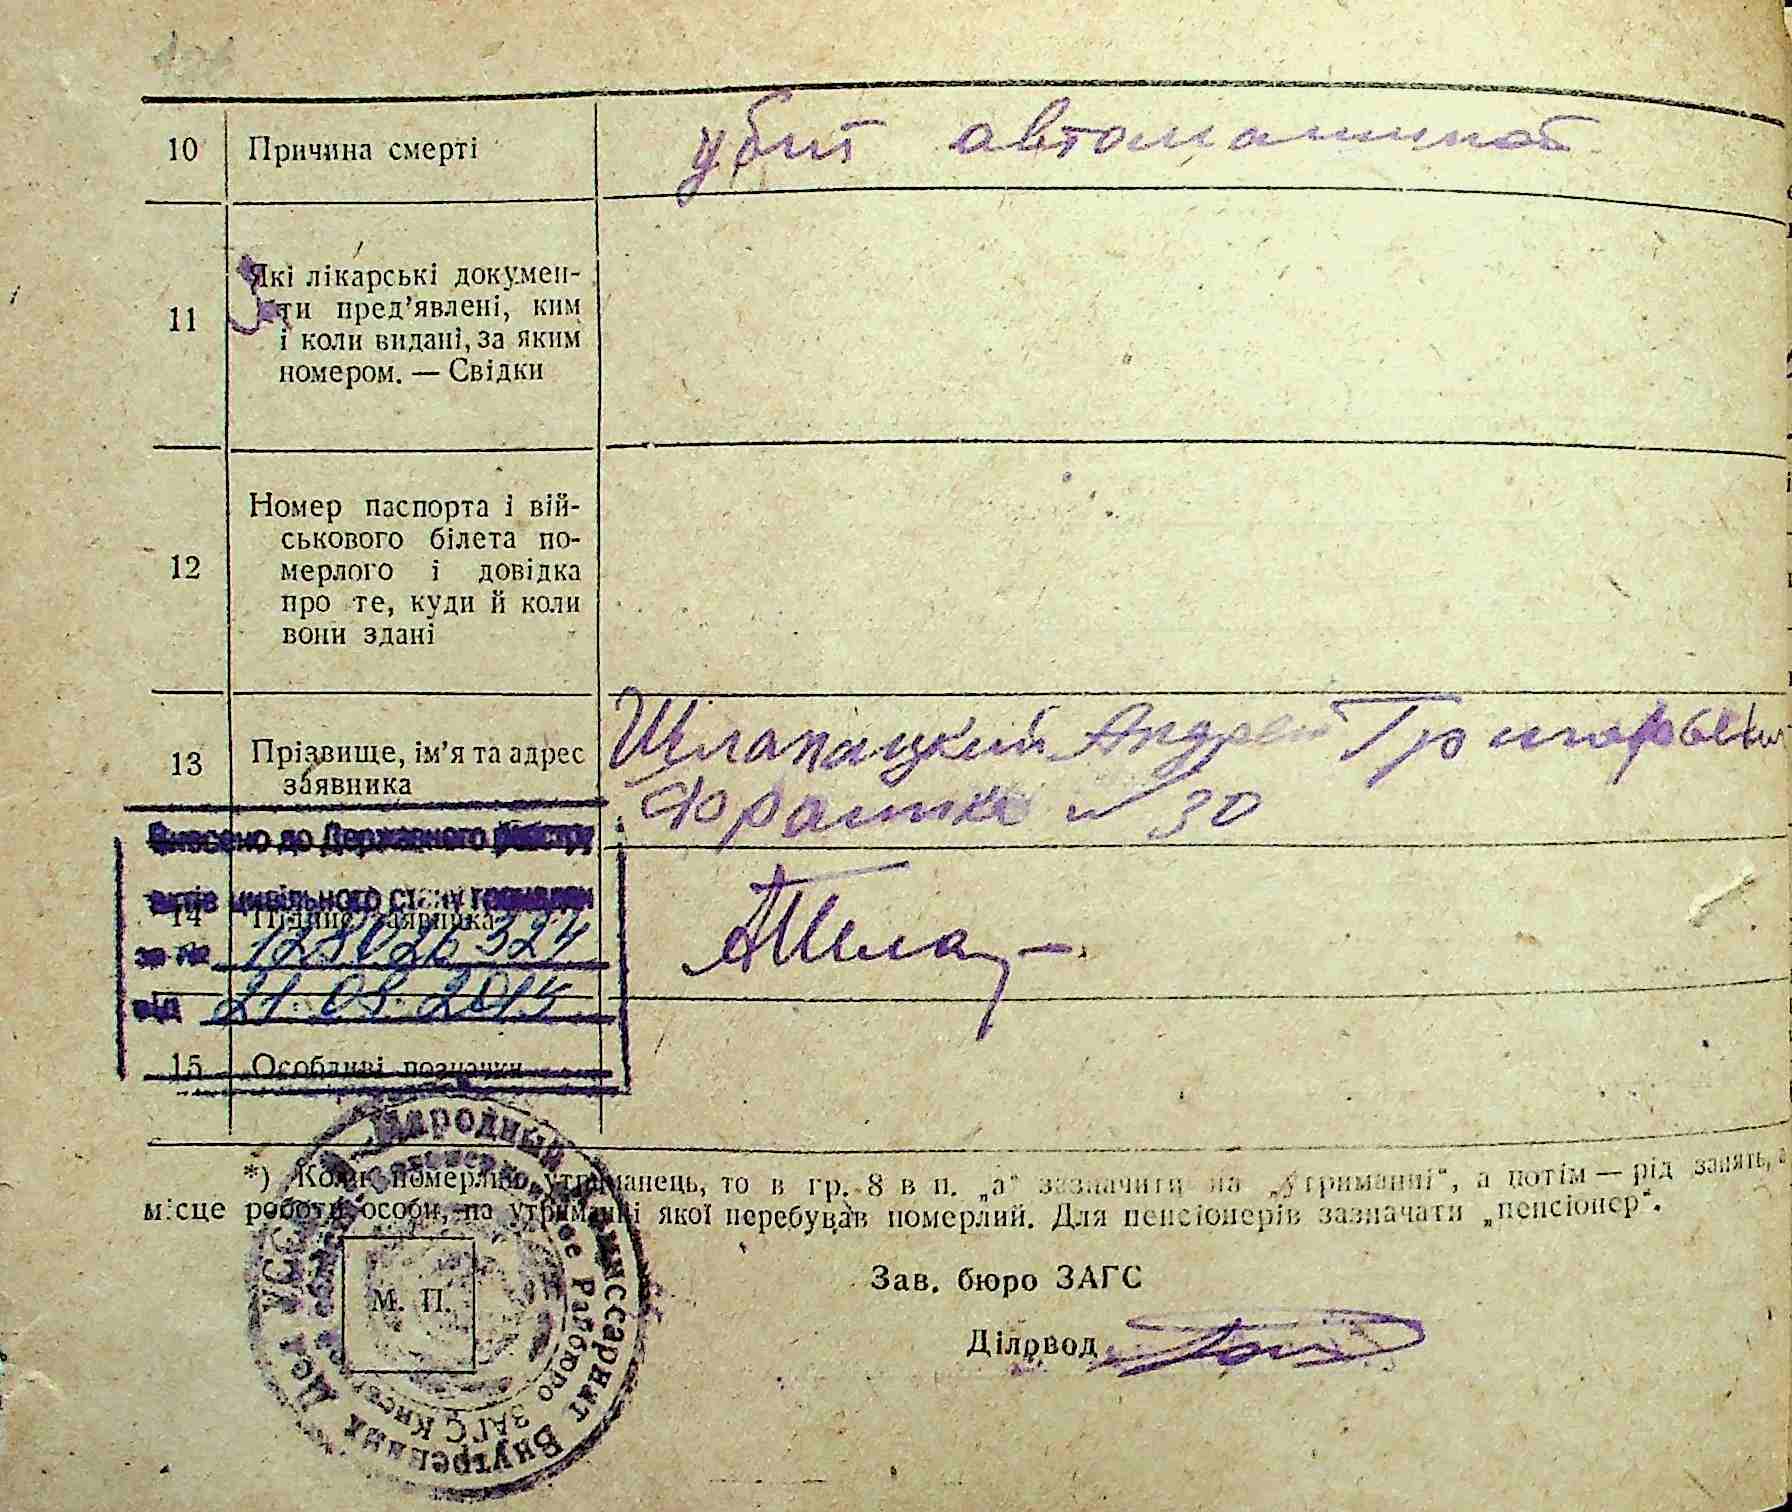 10 Причина смерті убит автомашиной
11 Які лікарські докумен-
ти пред'явлені, ким
і коли видані, за яким
номером. — Свідки
12 Номер паспорта і вій-
ськового білета по-
мерлого і довідка
про те, куди й коли
вони здані
13 Прізвище, ім'я та адрес
заявника
Шлапацкий Андрей Григорьевич
№ 30
Внесено до Державного реєстру
актів цивільного стану громадян
14 Підпис заявника
за №
від
15 Особливі позначки
*) Коли померлий утриманець, то в гр. 8 в п. „а" зазначити на „утриманні", а потім — рід занять, а
місце роботи особи, на утриманні якої перебував померлий. Для пенсіонерів зазначати „пенсіонер".
Зав. бюро ЗАГС
М. П.
Діловод
Народный Комиссариат Внутренних Дел УССР
Райбюро ЗАГС